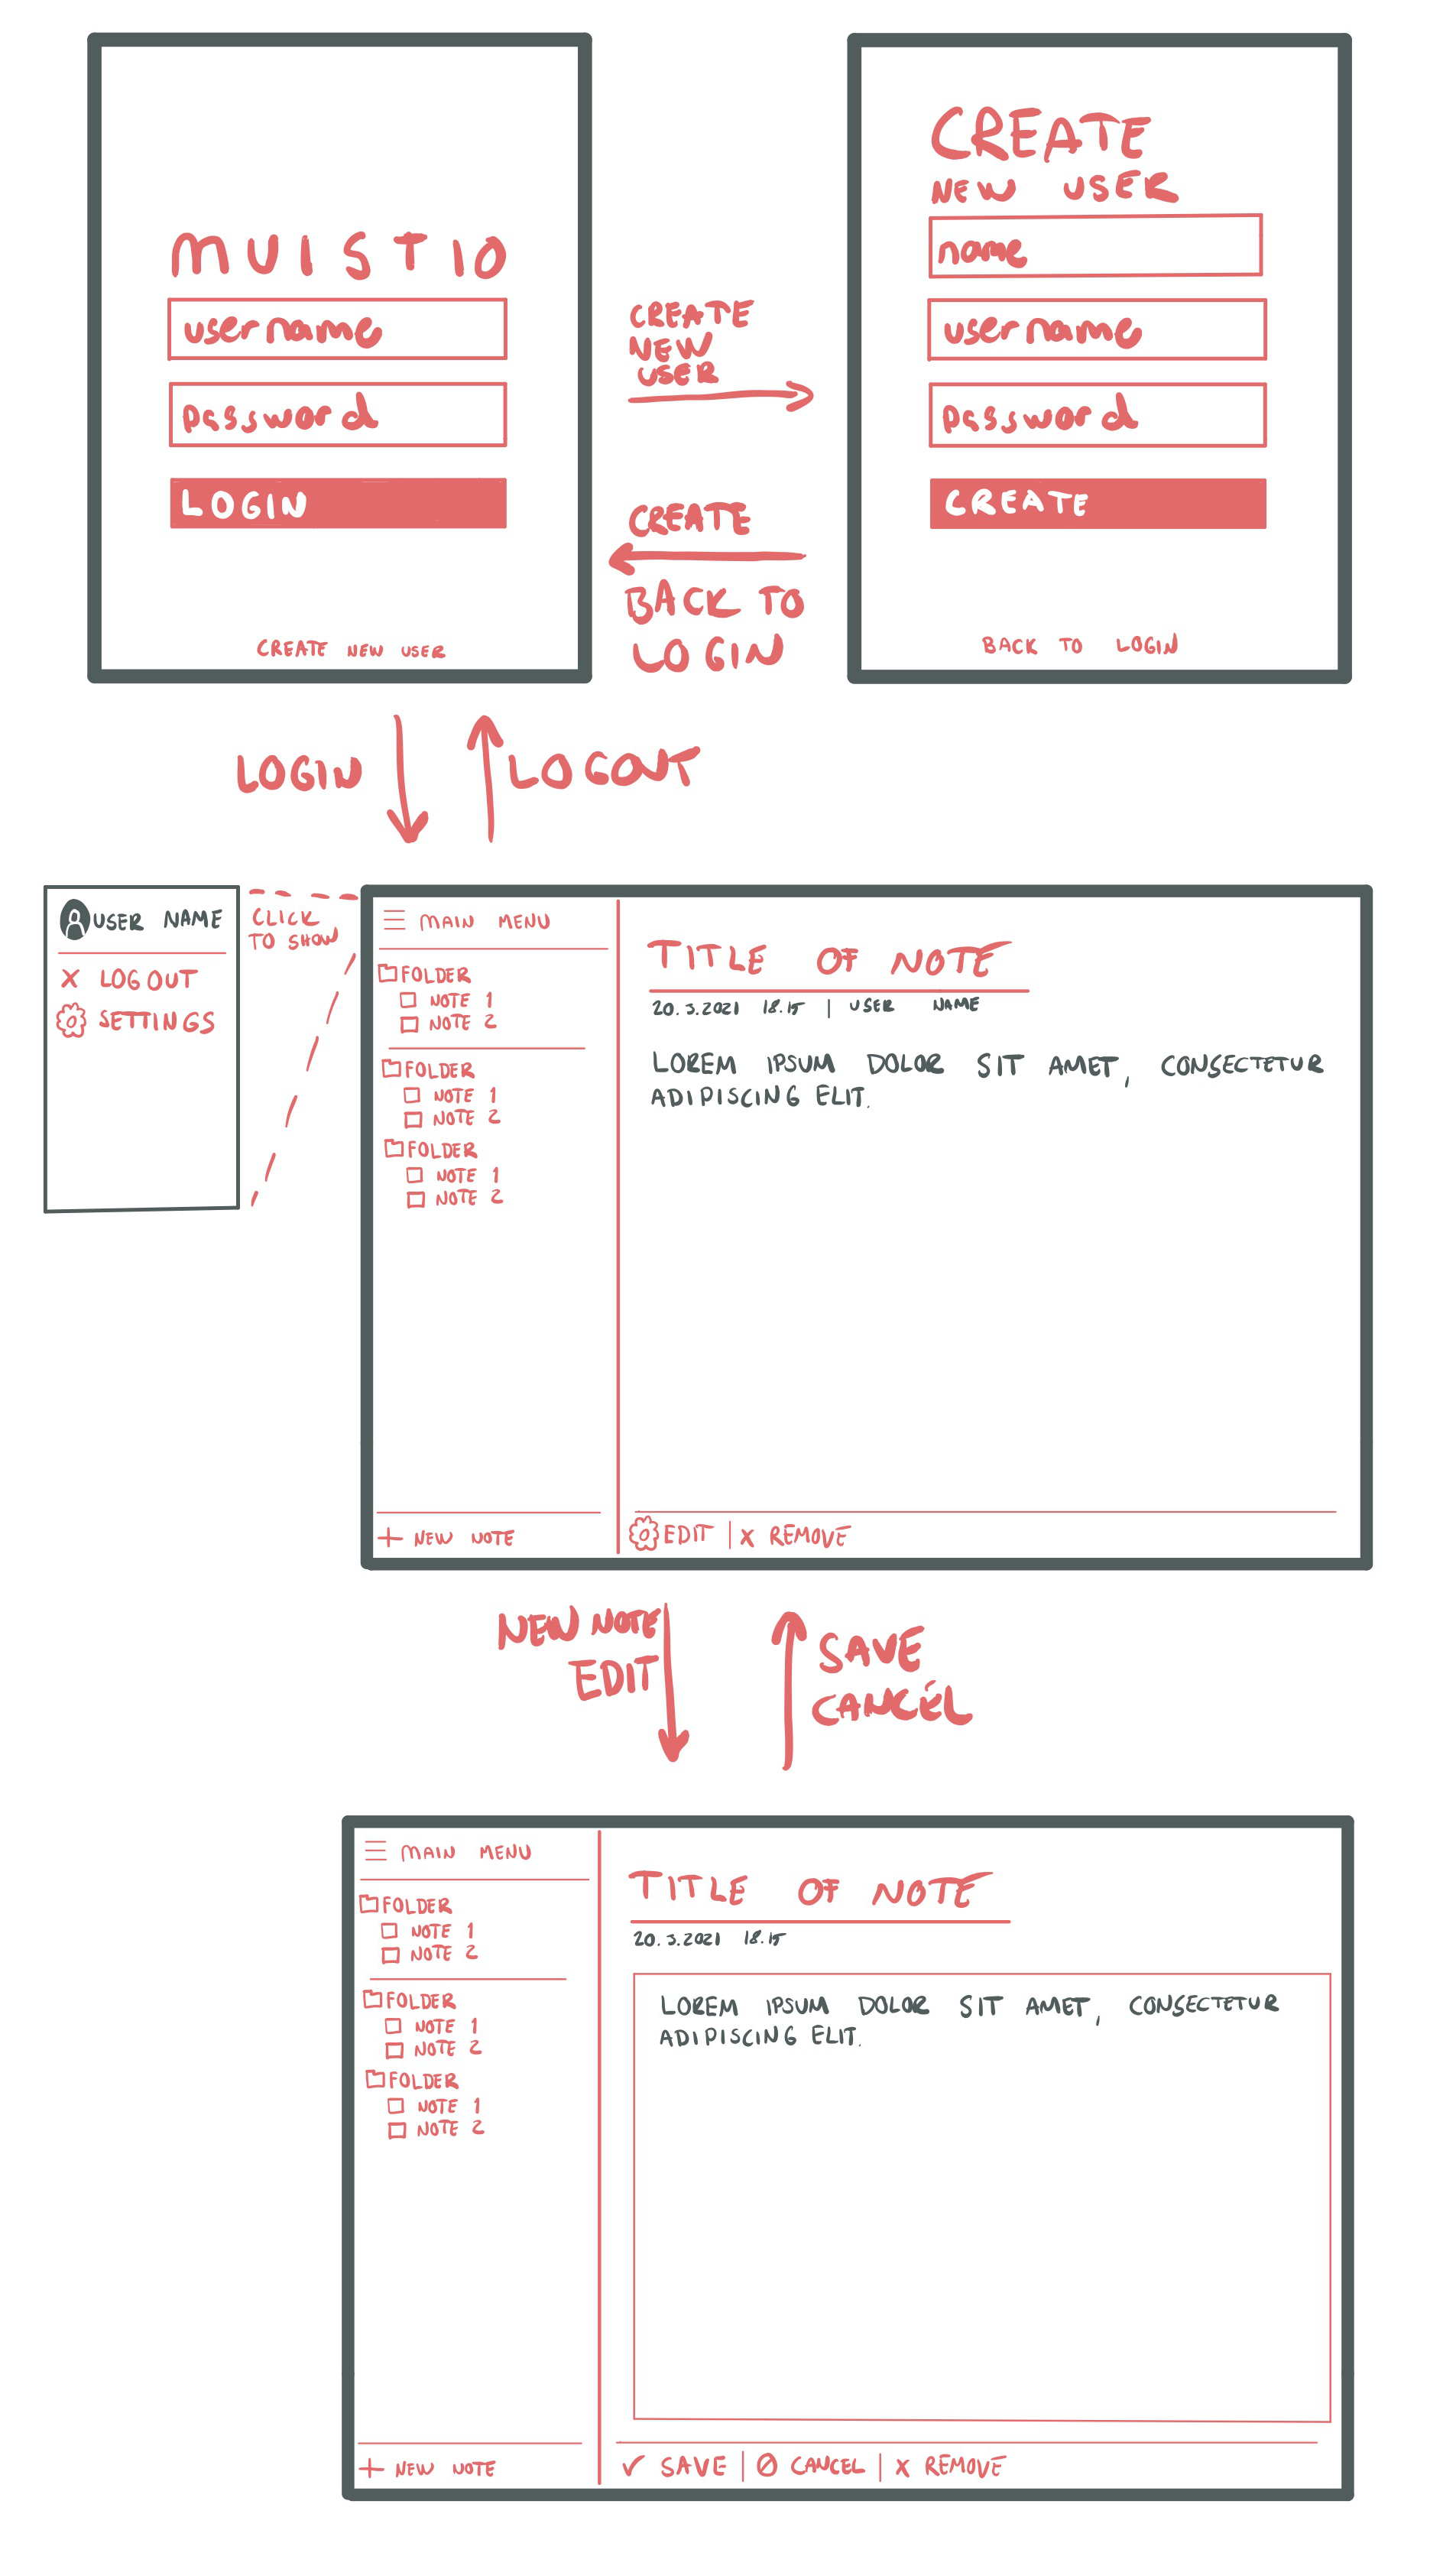 MUISTIO
username
password
LOGIN
CREATE NEW USER
CREATE
NEW
USER
CREATE
BACK TO
LOGIN
CREATE
NEW USER
name
username
password
CREATE
BACK TO LOGIN
LOGIN
LOGOUT
USER NAME
X LOG OUT
SETTINGS
CLICK
TO SHOW
MAIN MENU
FOLDER
NOTE 1
NOTE 2
FOLDER
NOTE 1
NOTE 2
FOLDER
NOTE 1
NOTE 2
+ NEW NOTE
TITLE OF NOTE
20.3.2021 18.15 | USER NAME
LOREM IPSUM DOLOR SIT AMET, CONSECTETUR
ADIPISCING ELIT.
EDIT | X REMOVE
NEW NOTE
EDIT
SAVE
CANCEL
MAIN MENU
FOLDER
NOTE 1
NOTE 2
FOLDER
NOTE 1
NOTE 2
FOLDER
NOTE 1
NOTE 2
+ NEW NOTE
TITLE OF NOTE
20.3.2021 18.15
LOREM IPSUM DOLOR SIT AMET, CONSECTETUR
ADIPISCING ELIT.
✓ SAVE | Ø CANCEL | X REMOVE